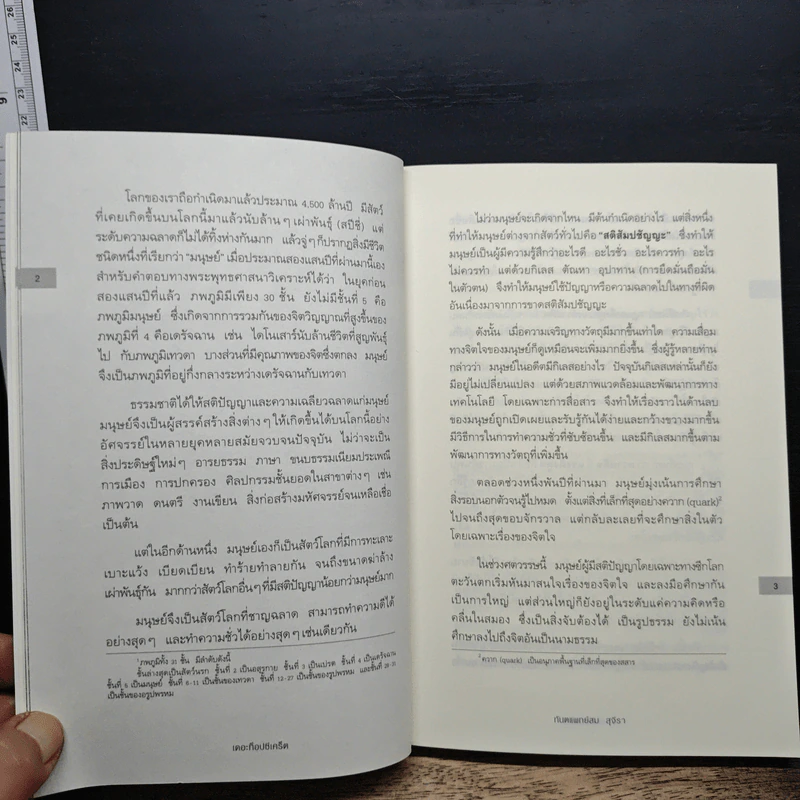 โลกของเราถือกำเนิดมาแล้วประมาณ 4,500 ล้านปี มีสัตว์
ที่เคยเกิดขึ้นบนโลกนี้มาแล้วนับล้านๆ เผ่าพันธุ์ (สปีชี่) แต่
ระดับความฉลาดก็ไม่ได้ทิ้งห่างกันมาก แล้วจู่ๆ ก็ปรากฏสิ่งมีชีวิต
ชนิดหนึ่งที่เรียกว่า "มนุษย์" เมื่อประมาณสองแสนปีที่ผ่านมานี้เอง
สำหรับคำตอบทางพระพุทธศาสนาวิเคราะห์ได้ว่า ในยุคก่อน
สองแสนปีที่แล้ว ภพภูมิมีเพียง 30 ชั้น ยังไม่มีชั้นที่ 5 คือ
ภพภูมิมนุษย์ ซึ่งเกิดจากการรวมกันของจิตวิญญาณที่สูงขึ้นของ
ภพภูมิที่ 4 คือเดรัจฉาน เช่น ไดโนเสาร์นับล้านชีวิตที่สูญพันธุ์
ไป กับภพภูมิเทวดา บางส่วนที่มีคุณภาพของจิตซึ่งตกลง มนุษย์
จึงเป็นภพภูมิที่อยู่กึ่งกลางระหว่างเดรัจฉานกับเทวดา
2
ธรรมชาติได้ให้สติปัญญาและความเฉลียวฉลาดแก่มนุษย์
มนุษย์จึงเป็นผู้สรรค์สร้างสิ่งต่างๆ ให้เกิดขึ้นได้บนโลกนี้อย่าง
อัศจรรย์ในหลายยุคหลายสมัยจวบจนปัจจุบัน ไม่ว่าจะเป็น
สิ่งประดิษฐ์ใหม่ๆ อารยธรรม ภาษา ขนบธรรมเนียมประเพณี
การเมือง การปกครอง ศิลปกรรมชั้นยอดในสาขาต่างๆ เช่น
ภาพวาด ดนตรี งานเขียน สิ่งก่อสร้างมหัศจรรย์จนเหลือเชื่อ
เป็นต้น
แต่ในอีกด้านหนึ่ง มนุษย์เองก็เป็นสัตว์โลกที่มีการทะเลาะ
เบาะแว้ง เบียดเบียน ทำร้ายทำลายกัน จนถึงขนาดฆ่าล้าง
เผ่าพันธุ์กัน มากกว่าสัตว์โลกอื่นๆ ที่มีสติปัญญาน้อยกว่ามนุษย์มาก
มนุษย์จึงเป็นสัตว์โลกที่ชาญฉลาด สามารถทำความดีได้
อย่างสุดๆ และทำความชั่วได้อย่างสุดๆ เช่นเดียวกัน
1 ภพภูมิทั้ง 31 ชั้น มีลำดับดังนี้
ชั้นล่างสุดเป็นสัตว์นรก ชั้นที่ 2 เป็นอสุรกาย ชั้นที่ 3 เป็นเปรต ชั้นที่ 4 เป็นเดรัจฉาน
ชั้นที่ 5 เป็นมนุษย์ ชั้นที่ 6-11 เป็นชั้นของเทวดา ชั้นที่ 12-27 เป็นชั้นของรูปพรหม และชั้นที่ 28-31
เป็นชั้นของอรูปพรหม
เดอะท็อปซีเคร็ต
ไม่ว่ามนุษย์จะเกิดจากไหน มีต้นกำเนิดอย่างไร แต่สิ่งหนึ่ง
ที่ทำให้มนุษย์ต่างจากสัตว์ทั่วไปคือ "สติสัมปชัญญะ" ซึ่งทำให้
มนุษย์เป็นผู้มีความรู้สึกว่าอะไรดี อะไรชั่ว อะไรควรทำ อะไร
ไม่ควรทำ แต่ด้วยกิเลส ตัณหา อุปาทาน (การยึดมั่นถือมั่น
ในตัวตน) จึงทำให้มนุษย์ใช้ปัญญาหรือความฉลาดไปในทางที่ผิด
อันเนื่องมาจากการขาดสติสัมปชัญญะ
ดังนั้น เมื่อความเจริญทางวัตถุมีมากขึ้นเท่าใด ความเสื่อม
ทางจิตใจของมนุษย์ก็ดูเหมือนจะเพิ่มมากยิ่งขึ้น ซึ่งผู้รู้หลายท่าน
กล่าวว่า มนุษย์ในอดีตมีกิเลสอย่างไร ปัจจุบันกิเลสเหล่านั้นก็ยัง
มีอยู่ไม่เปลี่ยนแปลง แต่ด้วยสภาพแวดล้อมและพัฒนาการทาง
เทคโนโลยี โดยเฉพาะการสื่อสาร จึงทำให้เรื่องราวในด้านลบ
ของมนุษย์ถูกเปิดเผยและรับรู้กันได้ง่ายและกว้างขวางมากขึ้น
มีวิธีการในการทำความชั่วที่ซับซ้อนขึ้น และมีกิเลสมากขึ้นตาม
พัฒนาการทางวัตถุที่เพิ่มขึ้น
ตลอดช่วงหนึ่งพันปีที่ผ่านมา มนุษย์มุ่งเน้นการศึกษา
สิ่งรอบนอกตัวจนรู้ไปหมด ตั้งแต่สิ่งที่เล็กที่สุดอย่างควาก (quark)2
ไปจนถึงสุดขอบจักรวาล แต่กลับละเลยที่จะศึกษาสิ่งในตัว
โดยเฉพาะเรื่องของจิตใจ
ในช่วงศตวรรษนี้ มนุษย์ผู้มีสติปัญญาโดยเฉพาะทางซีกโลก
ตะวันตกเริ่มหันมาสนใจเรื่องของจิตใจ และลงมือศึกษากัน
เป็นการใหญ่ แต่ส่วนใหญ่ก็ยังอยู่ในระดับแค่ความคิดหรือ
คลื่นในสมอง ซึ่งเป็นสิ่งจับต้องได้ เป็นรูปธรรม ยังไม่เน้น
ศึกษาลงไปถึงจิตอันเป็นนามธรรม
3
2 ควาก (quark) เป็นอนุภาคพื้นฐานที่เล็กที่สุดของสสาร
ทันตแพทย์สม สุจีรา
26
25
24
23
22
9